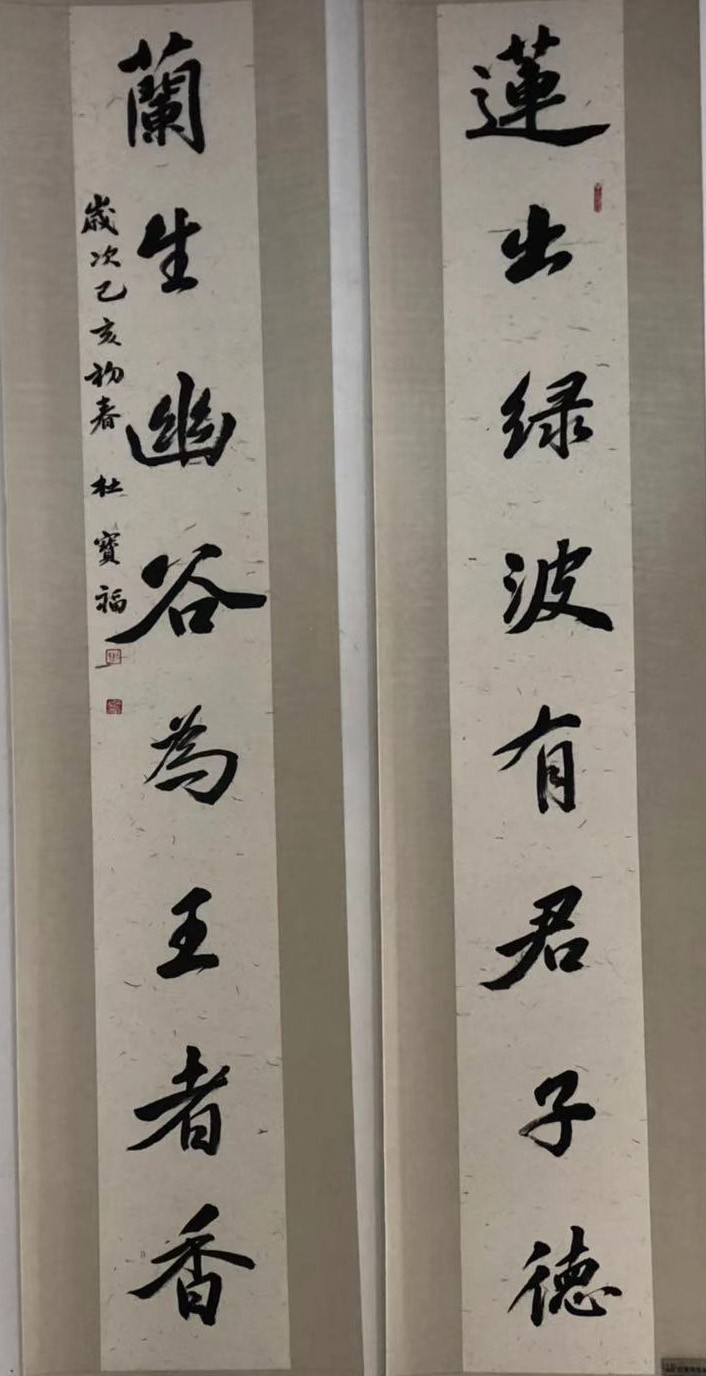 蓮出绿波有君子德
蘭生幽谷為王者香
歲次己亥初春 杜寶福